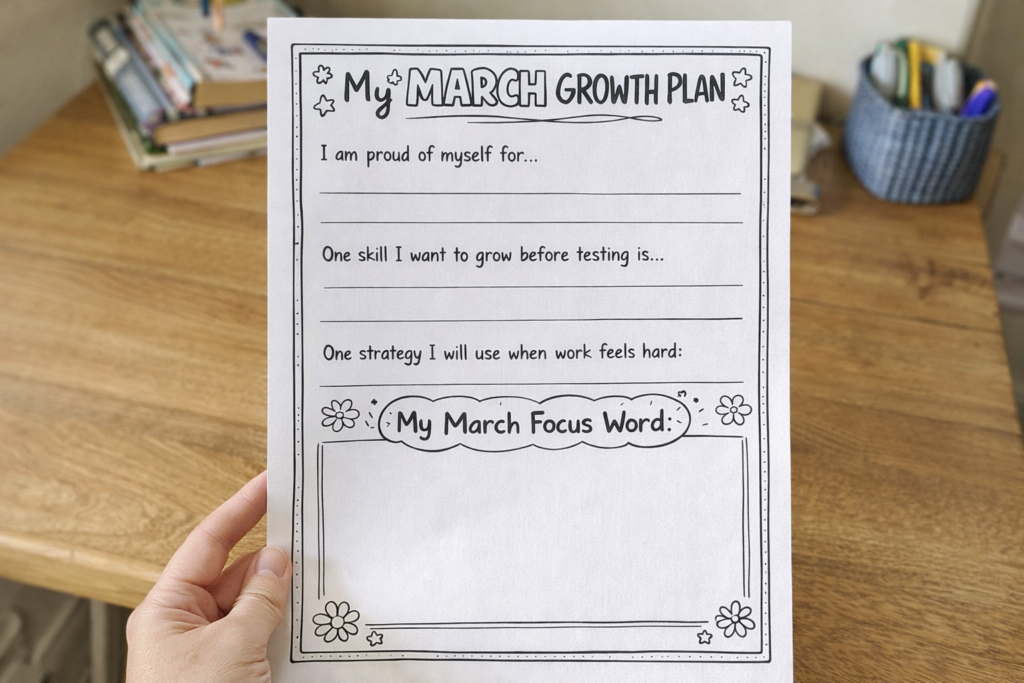 My MARCH GROWTH PLAN
I am proud of myself for...
One skill I want to grow before testing is...
One strategy I will use when work feels hard:
My March Focus Word: